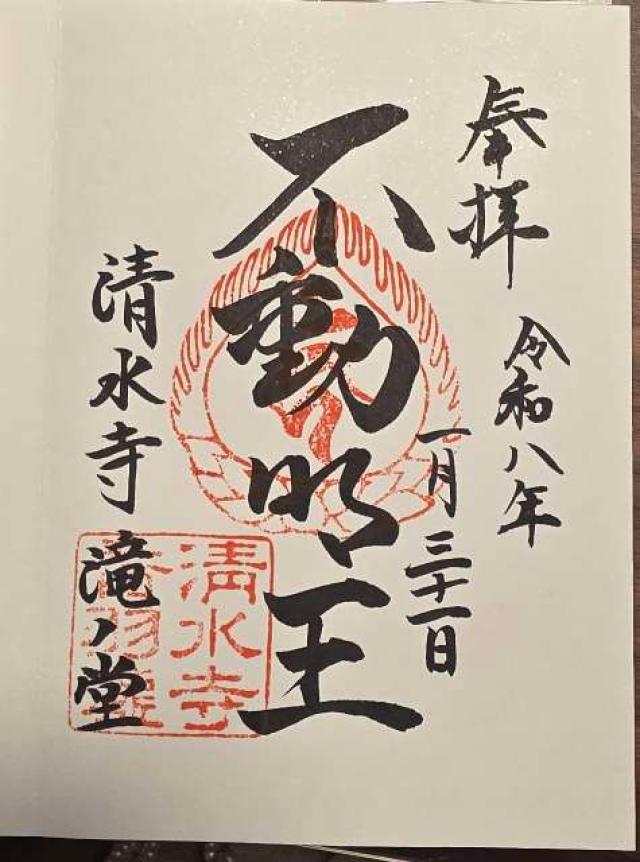 奉拝
令和八年
一月三十一日
不動明王
清水寺
滝ノ堂
清水寺
音羽瀧